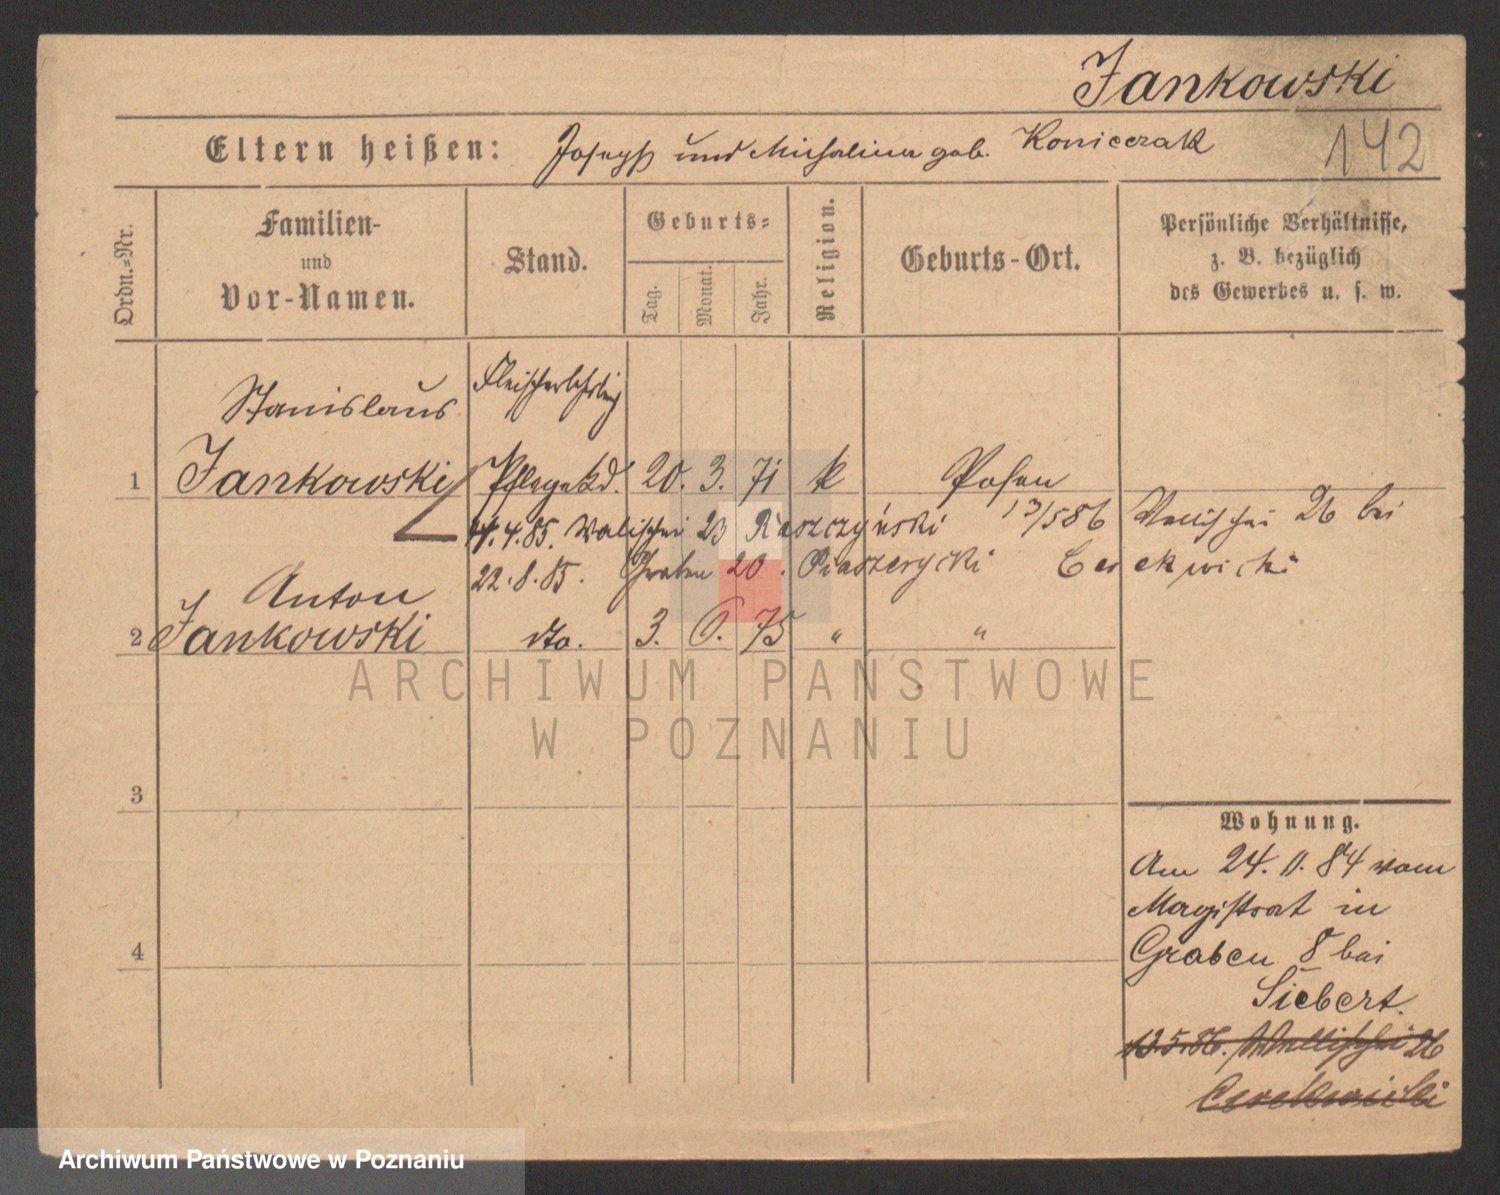 Jankowski
142
Eltern heißen: Joseph und Michalina geb. Konieczak
Ordn.-Nr.
Familien-
und
Vor-Namen.
Stand.
Geburts-
Tag.
Monat.
Jahr.
Religion.
Geburts-Ort.
Persönliche Verhältnisse,
z. B. bezüglich
des Gewerbes u. s. w.
Fleischerlehrling
Stanislaus
1 Jankowski Pflegekd. 20. 3. 71 k Posen
4.85. Wallischei 23 Raszczyński 13/5 86 Wallischei 26 bei
22.8.85. Graben 20. Piaszczycki Cerekwicki
Anton
2 Jankowski dto. 3. 6. 75 " "
3
Wohnung.
Am 24. 11. 84 vom
Magistrat in
4
Graben 8 bei
Siebert.
13.5.86. Wallischei 26
Cerekwicki
ARCHIWUM PAŃSTWOWE
W POZNANIU
Archiwum Państwowe w Poznaniu